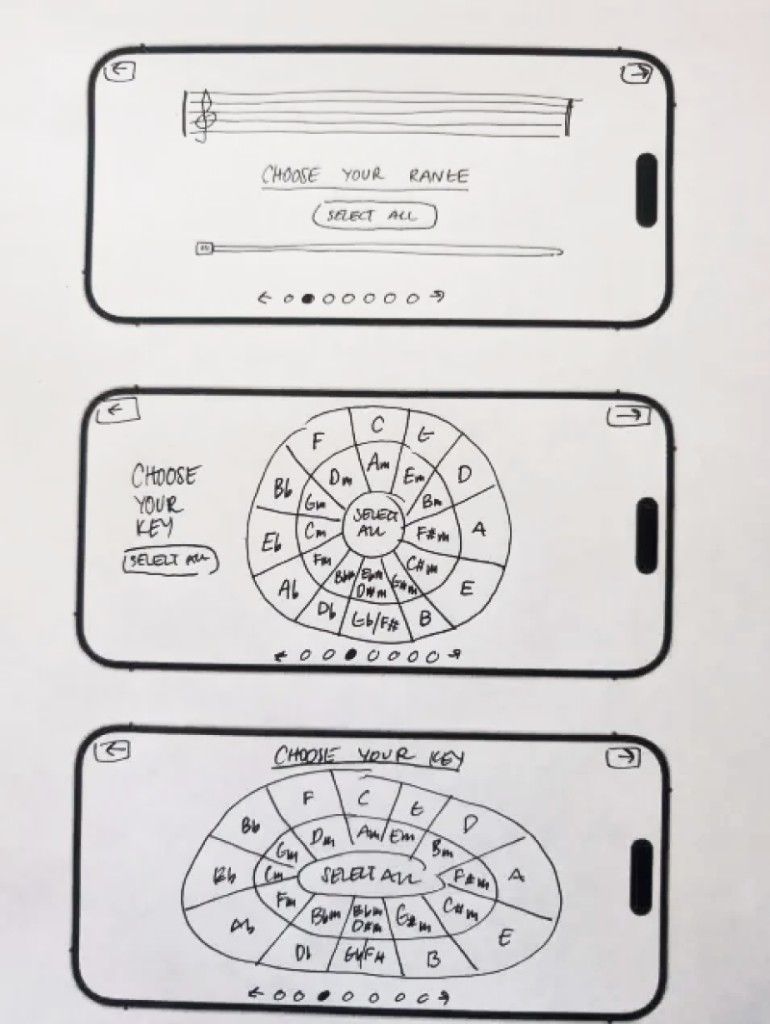 CHOOSE YOUR RANGE
SELECT ALL
CHOOSE
YOUR
KEY
SELECT ALL
C
G
D
A
E
B
Gb/F#
Db
Ab
Eb
Bb
F
Am
Em
Bm
F#m
C#m
G#m
Ebm
D#m
Bbm
Fm
Cm
Gm
Dm
SELECT
ALL
CHOOSE YOUR KEY
C
G
D
A
E
B
Gb/F#
Db
Ab
Eb
Bb
F
Am
Em
Bm
F#m
C#m
G#m
Ebm
D#m
Bbm
Fm
Cm
Gm
Dm
SELECT ALL